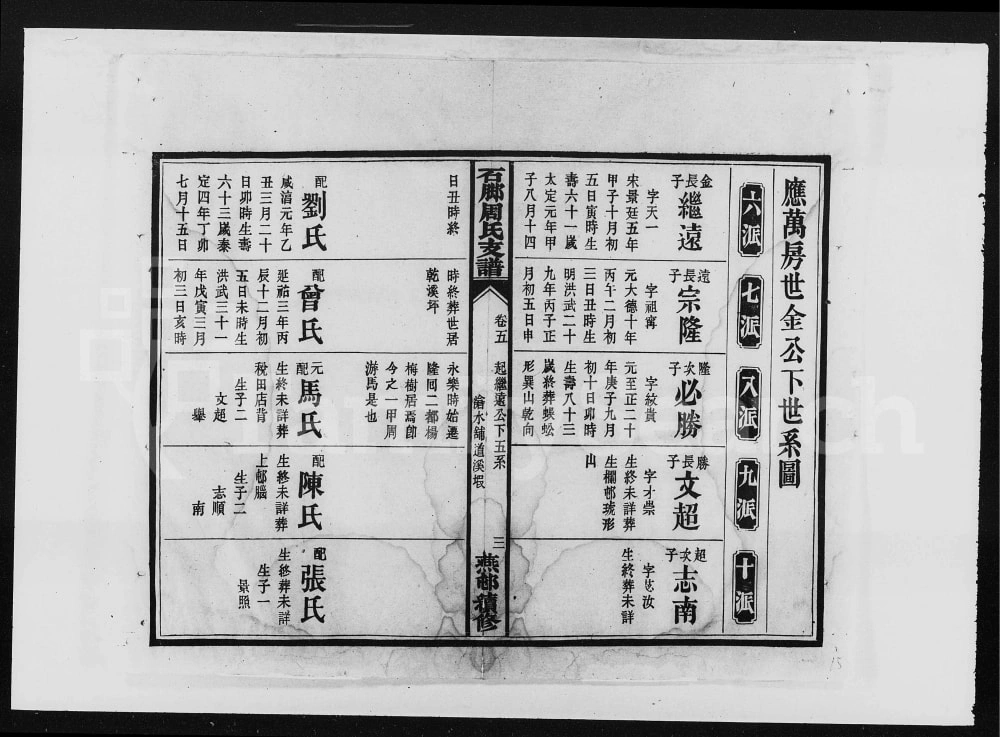 應萬房世金公下世系圖
六派
七派
八派
九派
十派
金長子
繼遠
字天一
宋景廷五年
甲子十月初
五日寅時生
壽六十一歲
太定元年甲
子八月十四
遠長子
宗隆
字祖寗
元大德十年
丙午二月初
三日丑時生
明洪武二十
九年丙子正
月初五日申
隆次子
必勝
字紋貴
元至正二十
年庚子九月
初十日卯時
生壽八十三
歲終葬蜈蚣
形巽山乾向
勝長子
文超
字才崇
生終未詳葬
生欄邨琥形
山
超次子
志南
字忞汝
生終葬未詳
石腳周氏支譜
卷五
起繼遠公下五系
淪水舖道溪塅
三
燕邨續修
日丑時終
配
劉氏
咸淯元年乙
丑三月二十
日卯時生壽
六十三歲泰
定四年丁卯
七月十五日
時終葬世居
乾溪坪
配
曾氏
延祐三年丙
辰十二月初
五日未時生
洪武三十一
年戊寅三月
初三日亥時
永樂時始遷
隆囘二都楊
梅樹居焉卽
今之一甲周
游馬是也
元配
馬氏
生終未詳葬
稅田店背
生子二
文超
舉
配
陳氏
生終未詳葬
上邨腦
生子二
志順
南
配
張氏
生終葬未詳
生子一
景照
15